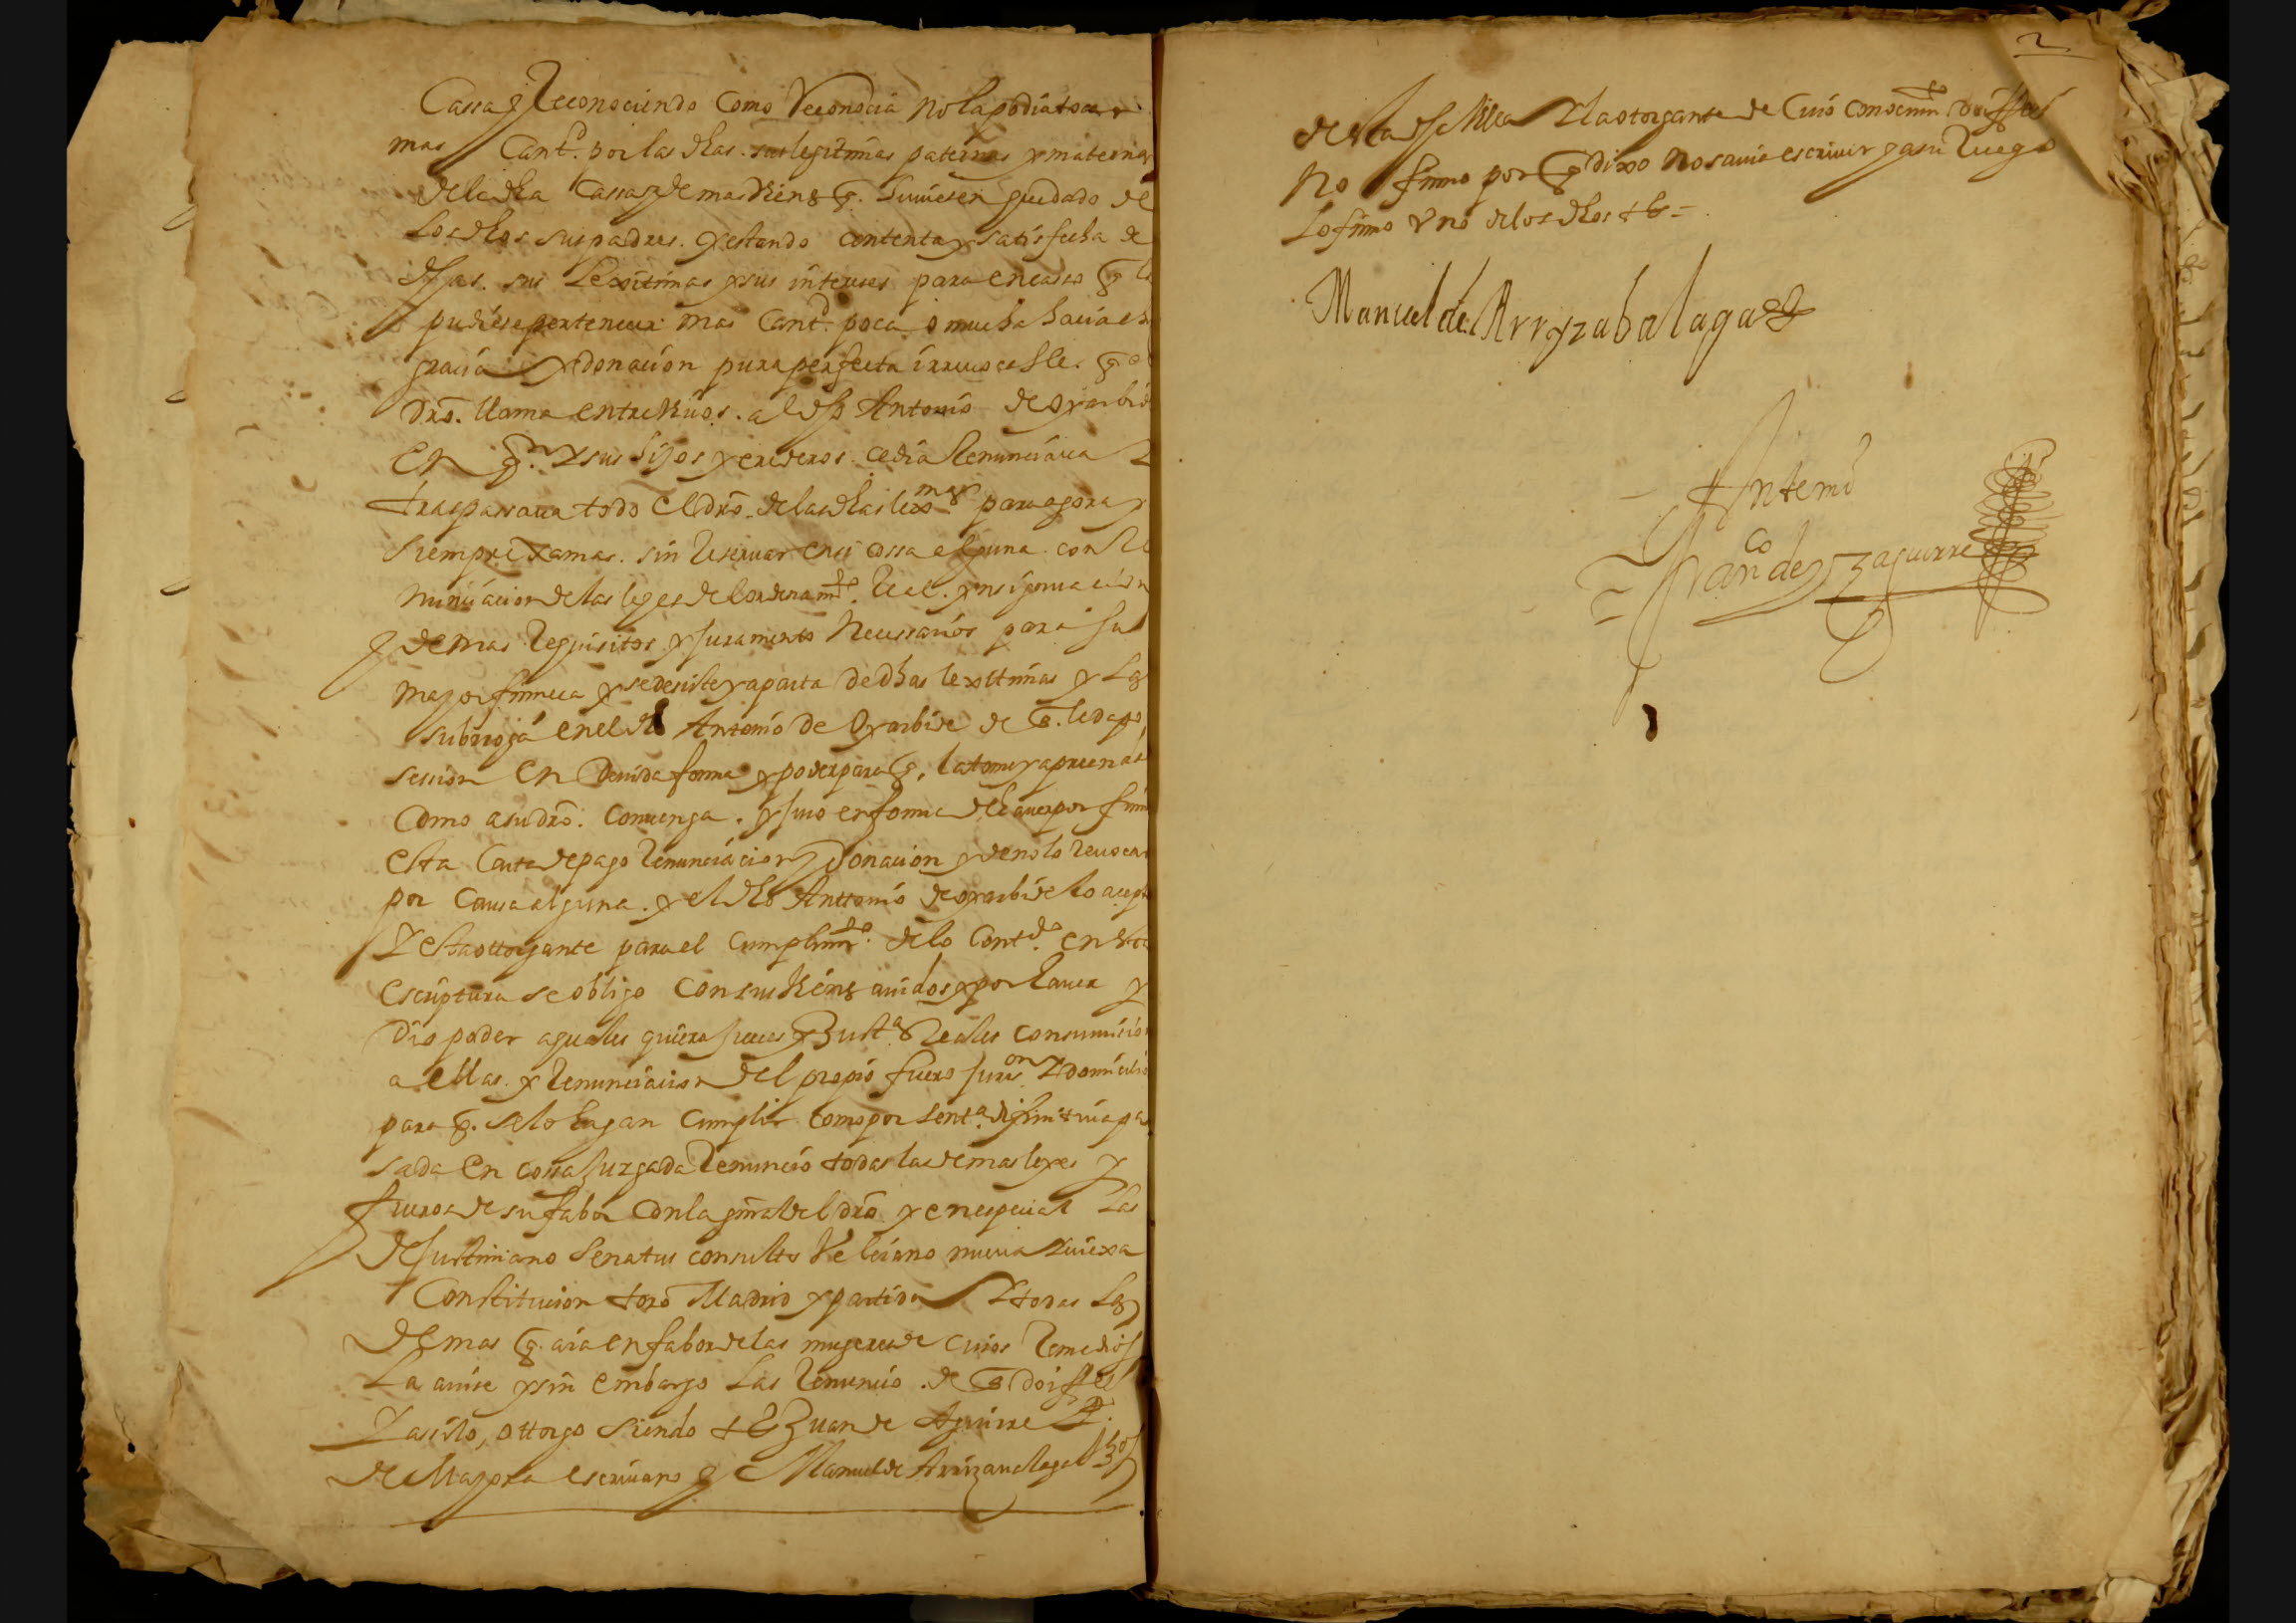 Cassa y Reconociendo Como Reconocia no la podia tocar
mas Cantd. por las dhas. sus legitimas paternas y maternas
de la dha Cassa y demas Viens q. huuiesen quedado de
los dhos sus padres. y estando contenta y satisfecha de
dhas. sus Lexitimas y sus intereses para en caso q le
pudiese pertenecer mas Cantd. poca o mucha hacia
gracia y donacion pura perfecta irreuocable. q el
dro. llama entre viuos. al dho Antonio de Oyarbide
en q.n y sus hijos y erederos cedia Renunciaua y
traspassaua todo el dro. de las dhas lexmas para agora y
siempre xamas. sin Reseruar en si cossa alguna con Re
nunciacion de las leyes del ordenamto. Real. ynsignuacion
y demas Requisitos y Juramento Necessarios para su
mayor firmeca y se desiste y aparta de dhas lexittimas y los
subrroga en el dho Antonio de Oyarbide de q. le da po
session en deuida forma y poder para q. la tome y aprenda
como a su dro. Conuenga. y Juro en forma de hauer por firme
esta Carta de pago Renunciacion y donacion y de no lo Reuocar
por Causa alguna. y el dho Anttonio de oyarbide lo acepto
Y esta ottorgante para el Cumplimto. de lo Contdo. en esta
escriptura se obligo con sus Viens auidos y por hauer y
dio poder a quales quiera Jueces y Justas Reales con sumicion
a ellas. y Renunciacion del propio fuero Juron Y domicilio
para q. se lo hagan Cumplir como por senta. difinitiua pa
sada en cossa Juzgada Renuncio todas las demas leyes y
fueros de su fabor con la gnral del dro y en especial Las
de Justiniano Senatus consulto Veleiano nueua Y viexa
Constitucion toro Madrid y partida Y todas las
demas q. aia en fabor de las mugeres de cuios Remedios
La auise y sin embargo Las Renuncio. de q doi ffee
Y assi lo, ottorgo siendo ts Juan de Aguirre
de Mayora escriuano y Manuel de Arrizaualaga Vos
2
de esta dha Villa Y la otorgante de Cuio Conocimto doi ffee
no firmo por q dixo no sauia escriuir y a su Ruego
Lo firmo Vno de los dhos ts =
Manuel de Arryzabalaga
Antemi
Franco de Yzaguirre